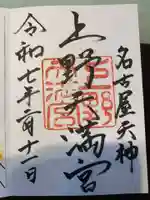 名古屋天神
上野天満宮
令和七年二月十一日